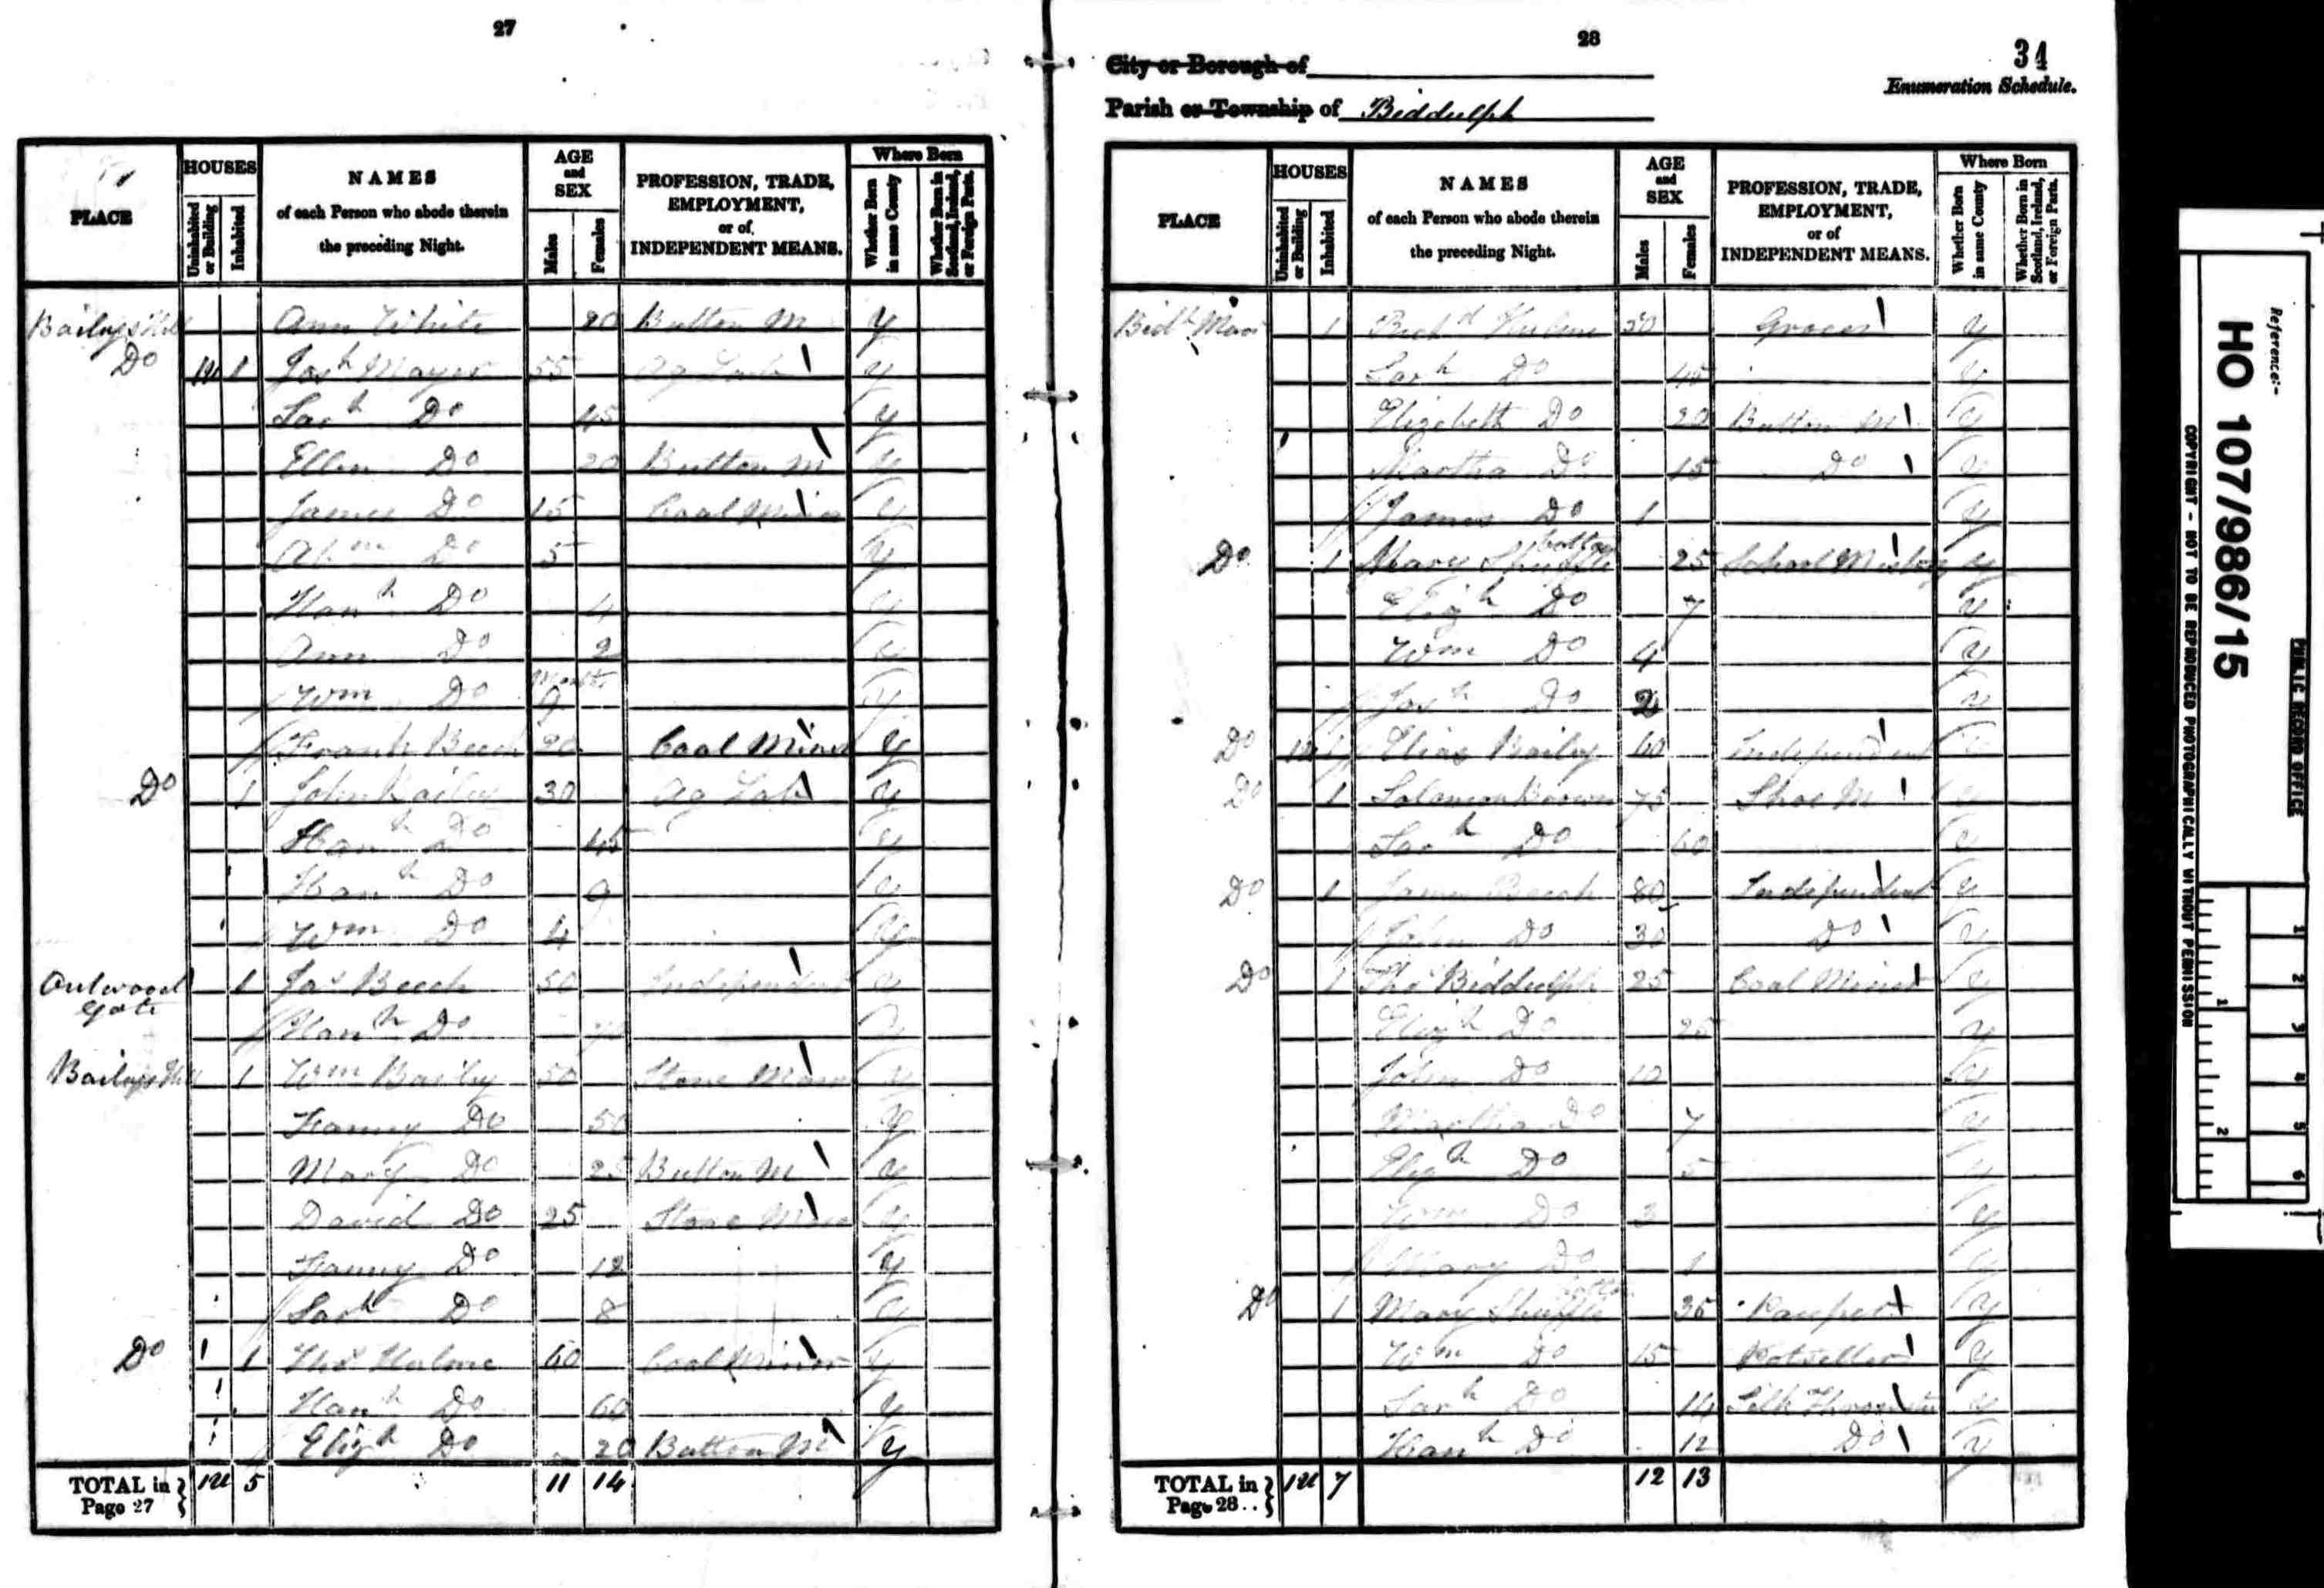 27
PLACE
HOUSES
Uninhabited or Building
Inhabited
NAMES
of each Person who abode therein
the preceding Night.
AGE and SEX
Males
Females
PROFESSION, TRADE,
EMPLOYMENT,
or of
INDEPENDENT MEANS.
Where Born
Whether Born in same County
Whether Born in Scotland, Ireland, or Foreign Parts.
Baileys Hill Ann White 20 Button M Y
Do 1U 1 Josh Mayer 55 Ag Lab Y
Sarh Do 45 Y
Ellen Do 20 Button M Y
James Do 15 Coal Miner Y
Abm Do 5 Y
Hanh Do 4 Y
Ann Do 2 Y
Wm Do 9 Months Y
Frank Beech 20 Coal Miner Y
Do 1 John Bailey 30 Ag Lab Y
Hanh Do 45 Y
Hanh Do 9 Y
Wm Do 4 Y
Outwood Gate 1 Jas Beech 50 Independent Y
Hanh Do Y
Baileys Hill 1 Wm Baily 50 Stone Mason Y
Fanny Do 50 Y
Mary Do 25 Button M Y
David Do 25 Stone Mason Y
Fanny Do 12 Y
Sarh Do 8 Y
Do 1 Thos Hulme 60 Coal Miner Y
Hanh Do 60 Y
Elizh Do 20 Button M Y
TOTAL in Page 27 } 1U 5 11 14
28
34
City or Borough of
Enumeration Schedule.
Parish or Township of Biddulph
PLACE
HOUSES
Uninhabited or Building
Inhabited
NAMES
of each Person who abode therein
the preceding Night.
AGE and SEX
Males
Females
PROFESSION, TRADE,
EMPLOYMENT,
or of
INDEPENDENT MEANS.
Where Born
Whether Born in same County
Whether Born in Scotland, Ireland, or Foreign Parts.
Bidh Moor 1 Richd Hulme 50 Grocer Y
Sarh Do 45 Y
Elizabeth Do 20 Button M Y
Martha Do 15 Do Y
James Do 1 Y
Do 1 Mary Shufflebottom 25 School Mistress Y
Elizh Do 7 Y
Wm Do 4 Y
Josh Do 2 Y
Do 1U 1 Elias Baily 60 Independent Y
Do 1 Solomon Brown 75 Shoe M Y
Sarh Do 60 Y
Do 1 James Beech 80 Independent Y
John Do 30 Do Y
Do 1 Thos Biddulph 25 Coal Miner Y
Elizh Do 25 Y
John Do 10 Y
Martha Do 7 Y
Elizh Do 5 Y
Wm Do 3 Y
Mary Do 1 Y
Do 1 Mary Shufflebottom 35 Pauper Y
Wm Do 15 Potseller Y
Sarh Do 14 Silk Throwster Y
Hanh Do 12 Do Y
TOTAL in Page 28.. } 1U 7 12 13
Reference:-
HO 107/986/15
PUBLIC RECORD OFFICE
COPYRIGHT - NOT TO BE REPRODUCED PHOTOGRAPHICALLY WITHOUT PERMISSION
1 2 3 4 5 6
1 2